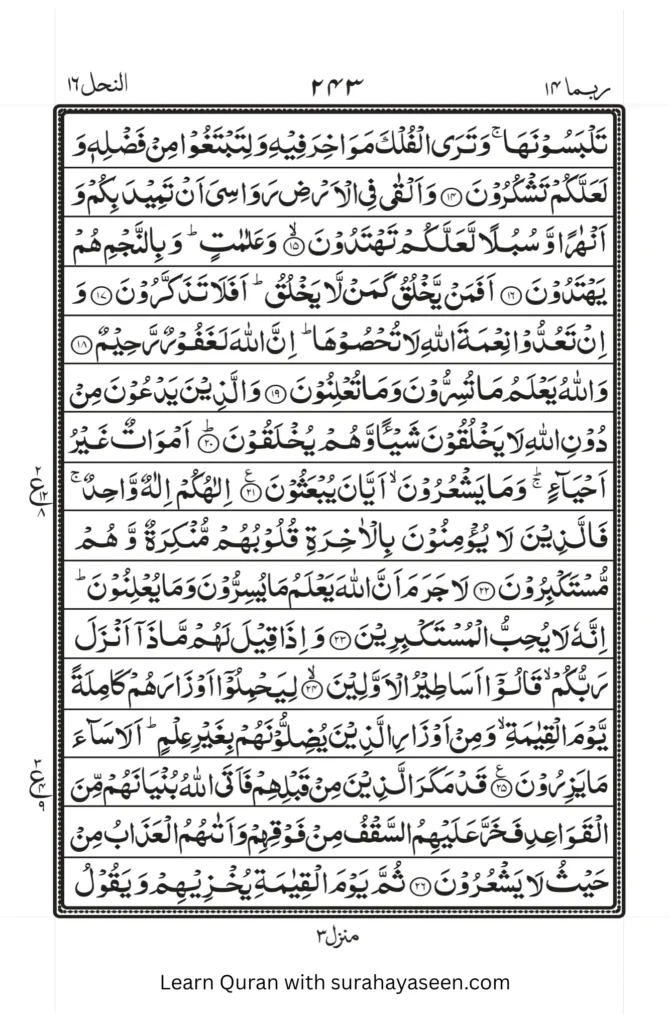 ربما ١٤ ٢٤٣ النحل ١٦
تَلۡبَسُوۡنَهَا ۚ وَتَرَى الۡفُلۡكَ مَوَاخِرَ فِيۡهِ وَلِتَبۡتَغُوۡا مِنۡ فَضۡلِهٖ وَ
لَعَلَّكُمۡ تَشۡكُرُوۡنَ ﴿۱۴﴾ وَاَلۡقٰى فِى الۡاَرۡضِ رَوَاسِىَ اَنۡ تَمِيۡدَ بِكُمۡ وَ
اَنۡهٰرًا وَّسُبُلًا لَّعَلَّكُمۡ تَهۡتَدُوۡنَ ۙ﴿۱۵﴾ وَعَلٰمٰتٍ ؕ وَبِالنَّجۡمِ هُمۡ
يَهۡتَدُوۡنَ ﴿۱۶﴾ اَفَمَنۡ يَّخۡلُقُ كَمَنۡ لَّا يَخۡلُقُ ؕ اَفَلَا تَذَكَّرُوۡنَ ﴿۱۷﴾ وَ
اِنۡ تَعُدُّوۡا نِعۡمَةَ اللّٰهِ لَا تُحۡصُوۡهَا ؕ اِنَّ اللّٰهَ لَغَفُوۡرٌ رَّحِيۡمٌ ﴿۱۸﴾
وَاللّٰهُ يَعۡلَمُ مَا تُسِرُّوۡنَ وَمَا تُعۡلِنُوۡنَ ﴿۱۹﴾ وَالَّذِيۡنَ يَدۡعُوۡنَ مِنۡ
دُوۡنِ اللّٰهِ لَا يَخۡلُقُوۡنَ شَيۡـًٔا وَّهُمۡ يُخۡلَقُوۡنَ ؕ﴿۲۰﴾ اَمۡوَاتٌ غَيۡرُ
اَحۡيَآءٍ ۚ وَمَا يَشۡعُرُوۡنَ ۙ اَيَّانَ يُبۡعَثُوۡنَ ﴿۲۱﴾ اِلٰهُكُمۡ اِلٰهٌ وَّاحِدٌ ۚ
٢ ع ١٢ ٨
فَالَّذِيۡنَ لَا يُؤۡمِنُوۡنَ بِالۡاٰخِرَةِ قُلُوۡبُهُمۡ مُّنۡكِرَةٌ وَّهُمۡ
مُّسۡتَكۡبِرُوۡنَ ﴿۲۲﴾ لَا جَرَمَ اَنَّ اللّٰهَ يَعۡلَمُ مَا يُسِرُّوۡنَ وَمَا يُعۡلِنُوۡنَ ؕ
اِنَّهٗ لَا يُحِبُّ الۡمُسۡتَكۡبِرِيۡنَ ﴿۲۳﴾ وَاِذَا قِيۡلَ لَهُمۡ مَّاذَاۤ اَنۡزَلَ
رَبُّكُمۡ ۙ قَالُوۡۤا اَسَاطِيۡرُ الۡاَوَّلِيۡنَ ۙ﴿۲۴﴾ لِيَحۡمِلُوۡۤا اَوۡزَارَهُمۡ كَامِلَةً
يَّوۡمَ الۡقِيٰمَةِ ۙ وَمِنۡ اَوۡزَارِ الَّذِيۡنَ يُضِلُّوۡنَهُمۡ بِغَيۡرِ عِلۡمٍ ؕ اَلَا سَآءَ
مَا يَزِرُوۡنَ ﴿۲۵﴾ قَدۡ مَكَرَ الَّذِيۡنَ مِنۡ قَبۡلِهِمۡ فَاَتَى اللّٰهُ بُنۡيَانَهُمۡ مِّنَ
٣ ع ٤ ٩
الۡقَوَاعِدِ فَخَرَّ عَلَيۡهِمُ السَّقۡفُ مِنۡ فَوۡقِهِمۡ وَاَتٰٮهُمُ الۡعَذَابُ مِنۡ
حَيۡثُ لَا يَشۡعُرُوۡنَ ﴿۲۶﴾ ثُمَّ يَوۡمَ الۡقِيٰمَةِ يُخۡزِيۡهِمۡ وَيَقُوۡلُ
منزل ٣
Learn Quran with surahayaseen.com